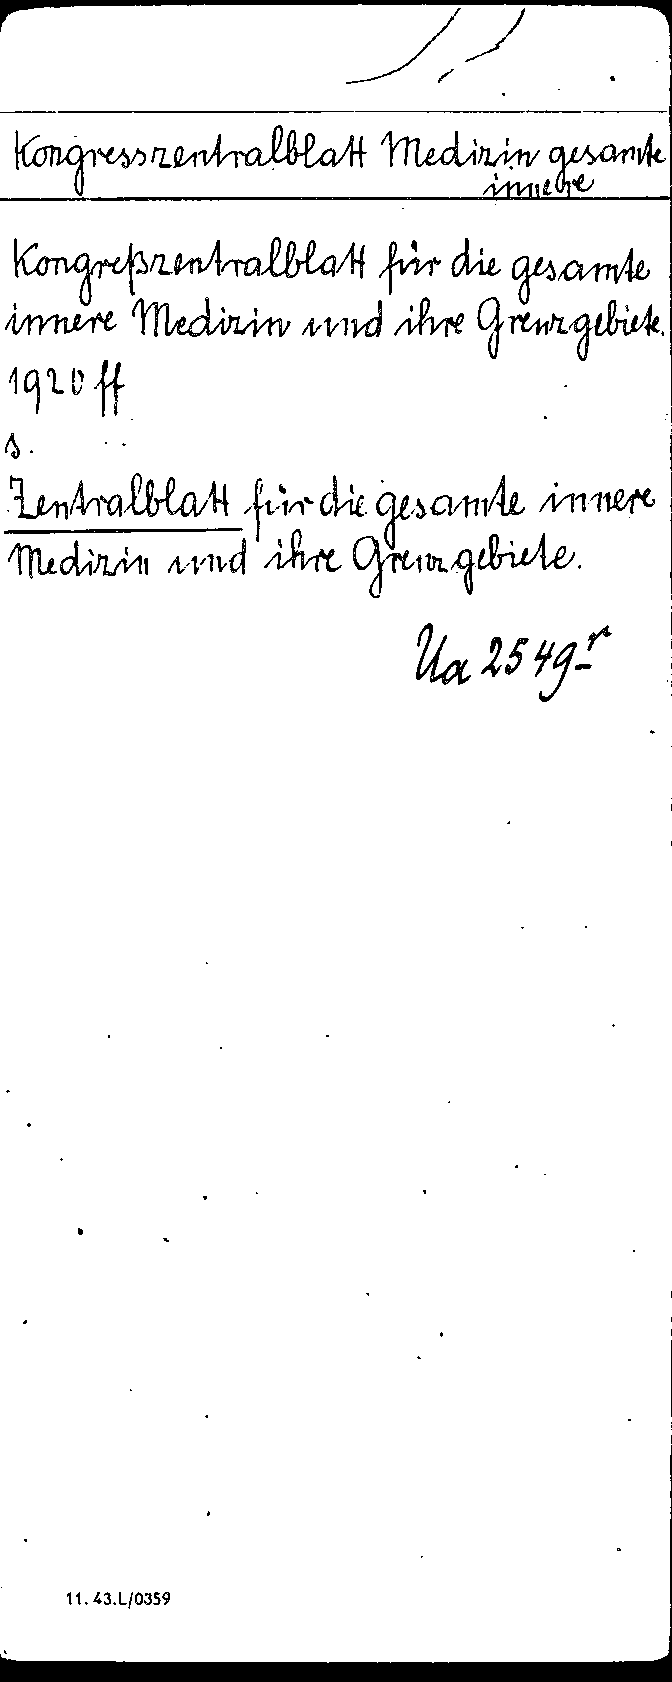 Kongresszentralblatt Medizin gesamte
innere
Kongreßzentralblatt für die gesamte
innere Medizin und ihre Grenzgebiete.
1920 ff
s.
Zentralblatt für die gesamte innere
Medizin und ihre Grenzgebiete.
Ua 2549 r
11.43.L/0359